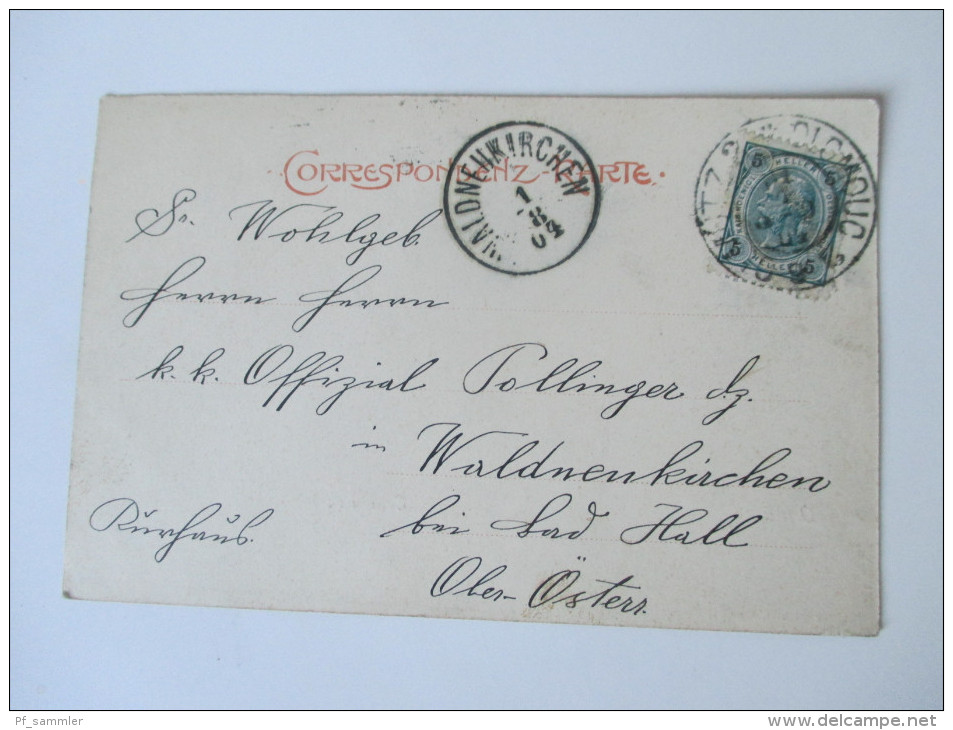 CORRESPONDENZ-KARTE.
WALDNEUKIRCHEN
1
8
04
OLOMOUC
5 HELLER 5
5 HELLER 5
Sr. Wohlgeb.
Herrn Herrn
k. k. Offizial Pollinger dz.
in Waldneukirchen
Kurhaus.
bei Bad Hall
Ober-Österr.
Pf_sammler
www.delcampe.net